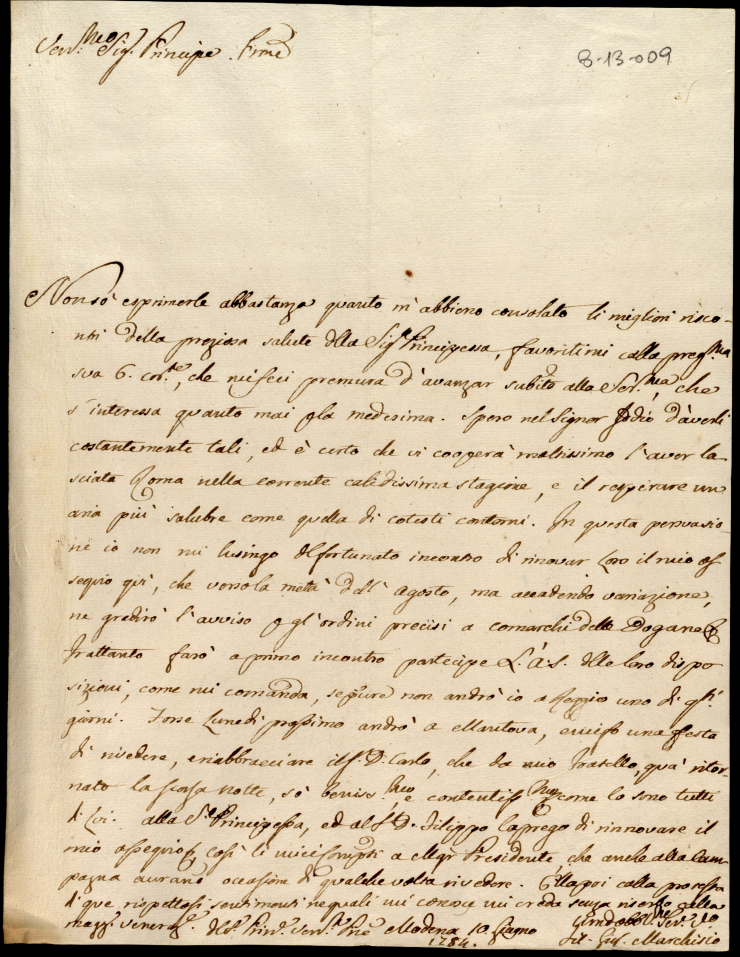 Ser.mo Sig. Principe Prone
8-13-009
Non sò esprimerle abbastanza quanto m'abbiono consolato li migliori risco-
ntri della preziosa salute della Sig.ra Principessa, favoritimi colla preg.ma
sua 6. cor.te, che mi feci premura d'avanzar subito alla Ser.ma, che
s'interessa quanto mai p la medesima. Spero nel Signor Iddio d'averli
costantemente tali, ed è certo che vi cooperà moltissimo l'aver la-
sciata Roma nella corrente caldissima stagione, e il respirare un
aria più salubre come quella di cotesti contorni. In questa persuasio-
ne io non mi lusingo del fortunato incontro di rinovar Loro il mio os
sequio quì, che verso la mettà dell'agosto, ma accadendo variazione,
ne gradirò l'avviso p gl'ordini precisi a comarchi delle Dogane
frattanto farò a primo incontro partecipe L.A.S. delle loro dispo
sizioni, come mi comanda, seppure non andrò io a Reggio uno di qti
giorni. Forse Lunedì prossimo andrò a Mantova, e mi fo una festa
di rivedere, e riabbracciare il S. D. Carlo, che da mio Fratello, quà ritor-
nato la scorsa notte, sò beniss.mo, e contentiss.mo come lo sono tutti
di Lui. alla S.ra Principessa, ed al S.r D. Filippo la prego di rinnovare il
mio ossequio, così li miei a Mgr Presidente, che anche alla Cam-
pagna avranno occasione di qualche volta rivedere. E poi colla protesta
di que rispettosi sentimenti ne quali mi conosce mi creda senza riserva colla
magg. veneraz. Modena 10. Giugno
1784.
Ser.re
Marchisio